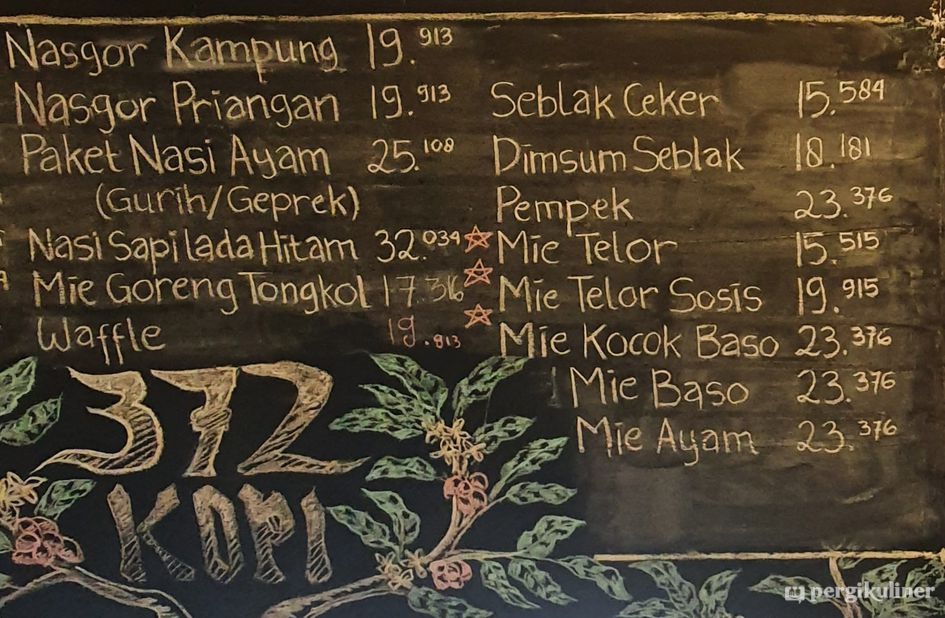 Nasgor Kampung 19.913
Nasgor Priangan 19.913
Paket Nasi Ayam 25.108
(Gurih/Geprek)
Nasi Sapi lada Hitam 32.034
Mie Goreng Tongkol 17.316
Waffle 19.813
Seblak Ceker 15.584
Dimsum Seblak 18.181
Pempek 23.376
Mie Telor 15.515
Mie Telor Sosis 19.915
Mie Kocok Baso 23.376
Mie Baso 23.376
Mie Ayam 23.376
372
KOPI
pergikuliner